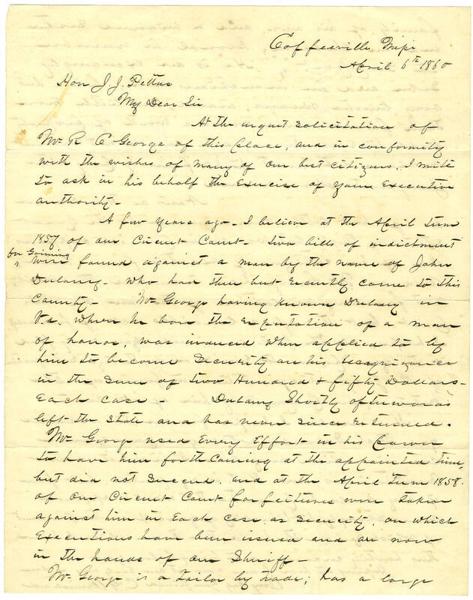 Coffeeville Mipi
April 6th 1860
Hon J. J. Pettus
My Dear Sir
At the urgent solicitation of
Mr R C George of this place, and in conformity
with the wishes of many of our best citizens, I write
to ask in his behalf the exercise of your executive
authority-
A few years ago- I believe at the April term
1857 of our Circuit Court- two bills of indictment
for Gaming
were found against a man by the name of John
Dulany- who had then but recently come to this
County- Mr George having known Dulany in
Va. where he bore the reputation of a man
of honor, was induced when applied to by
him to become security on his recognizance
in the sum of two Hundred & fifty Dollars-
Each case- Dulany shortly afterwards
left the State and has never since returned.
Mr George used every effort in his power
to have him forthcoming at the appointed time
but did not succeed. and at the April term 1858.
of our Circuit Court forfeitures were taken
against him in Each case as security, on which
Executions have been issued and are now
in the hands of our Sheriff-
Mr George is a tailor by trade; has a large